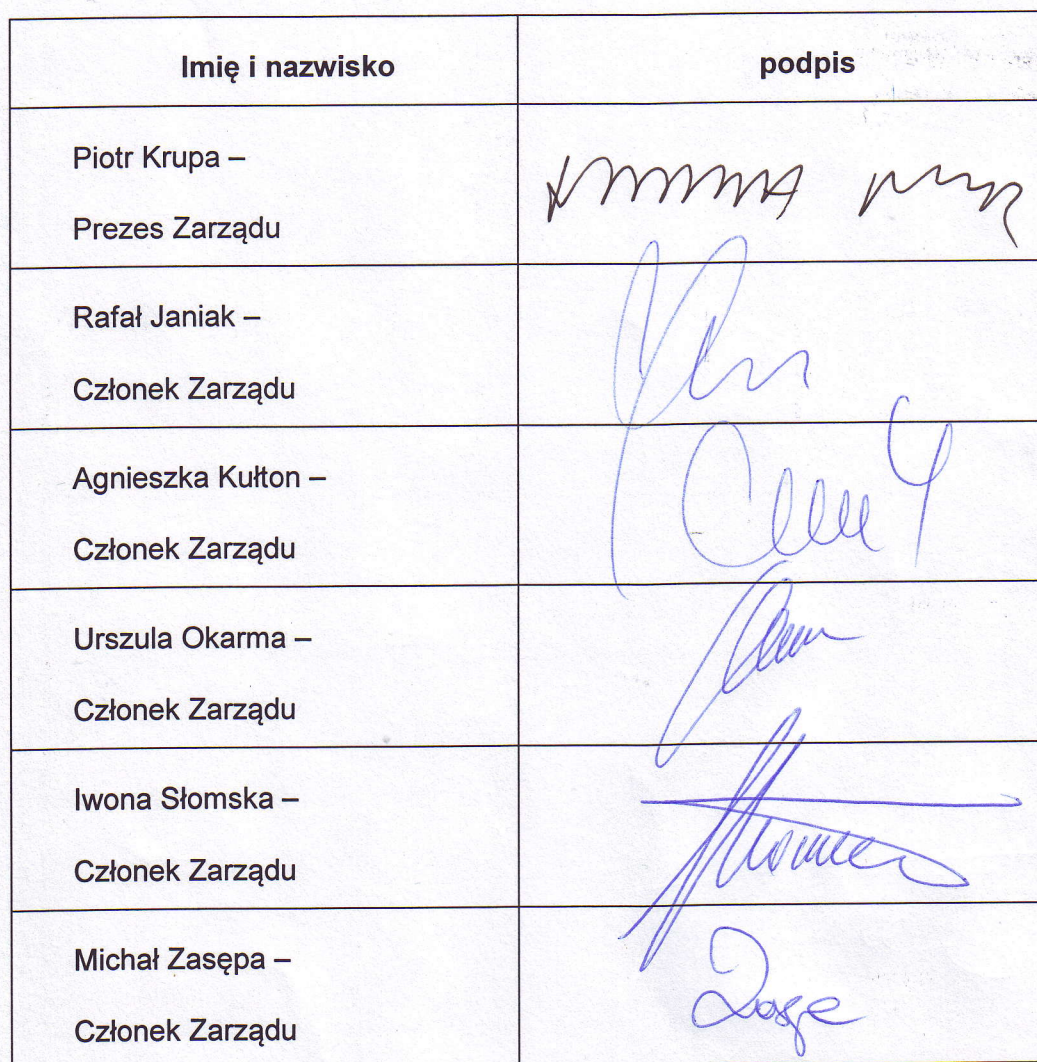 Imię i nazwisko podpis
Piotr Krupa –
Prezes Zarządu
Rafał Janiak –
Członek Zarządu
Agnieszka Kułton –
Członek Zarządu
Urszula Okarma –
Członek Zarządu
Iwona Słomska –
Członek Zarządu
Michał Zasępa –
Członek Zarządu